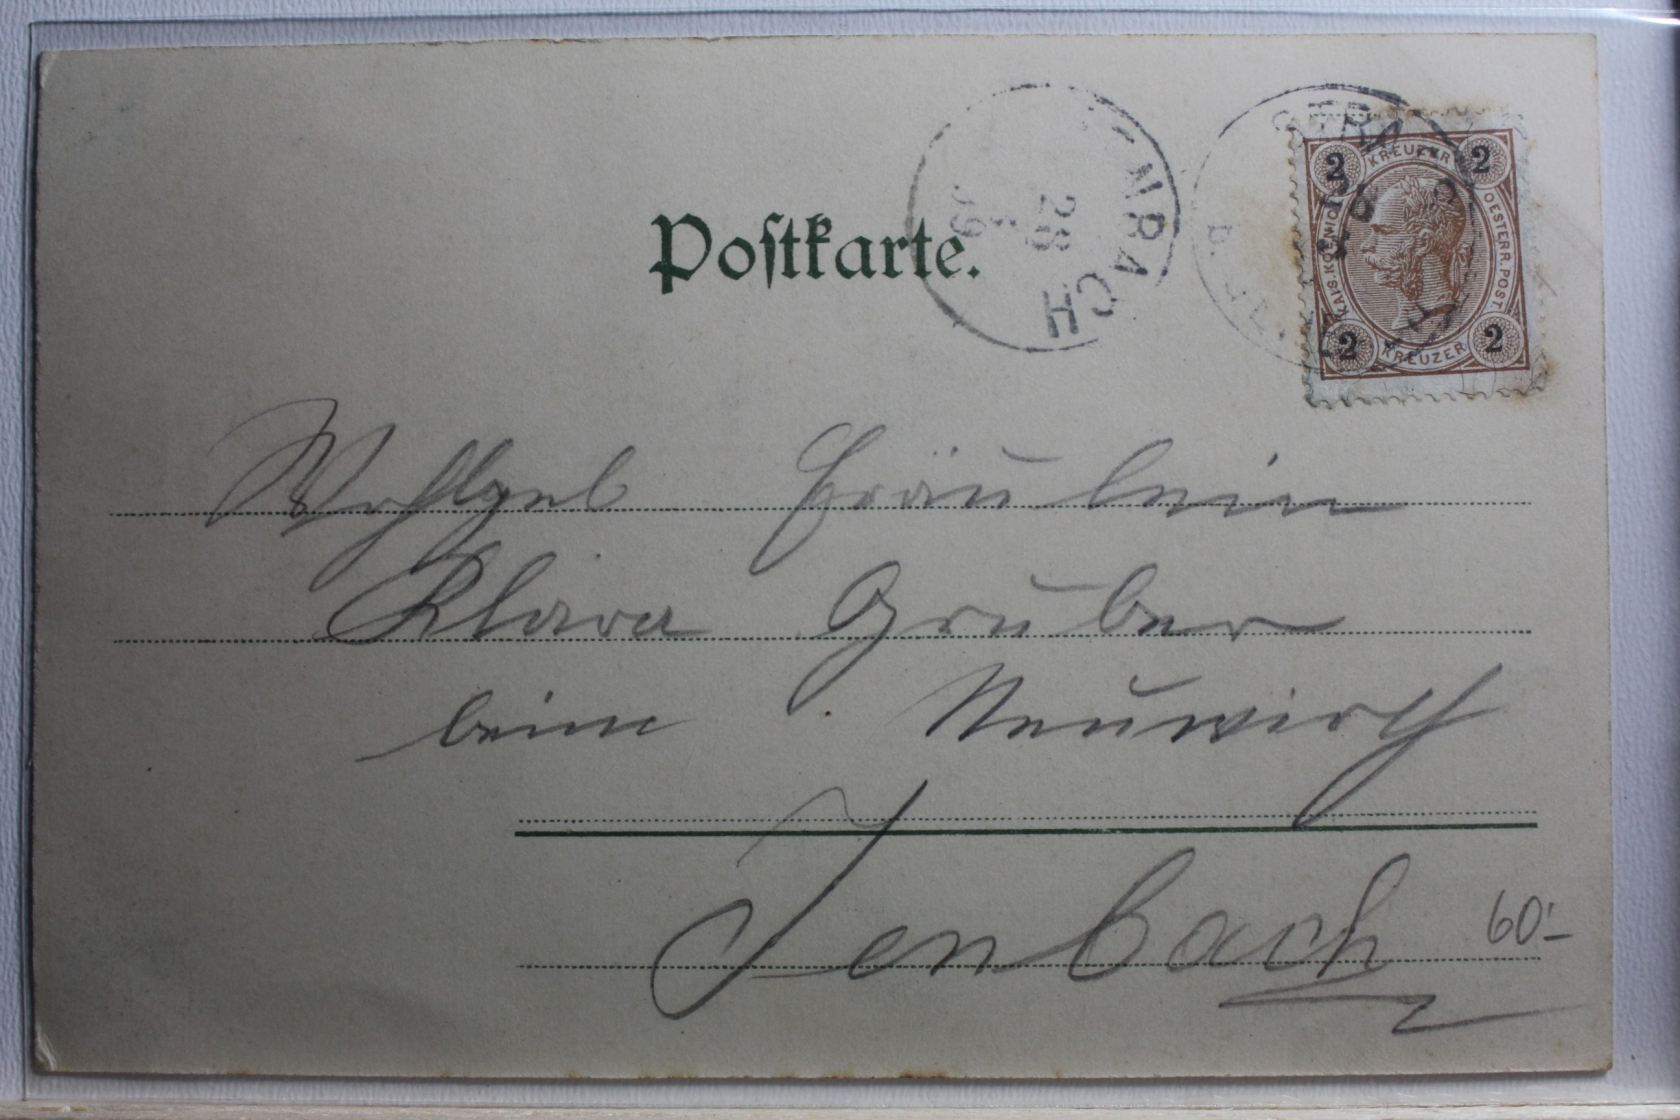 Postkarte.
ENBACH
28
99
2 KREUZER 2
KAIS. KOENIGL. OESTERR. POST.
2 KREUZER 2
Wohlgeb Fräulein
Klara Gruber
beim Neuwirth
Jenbach
60.-